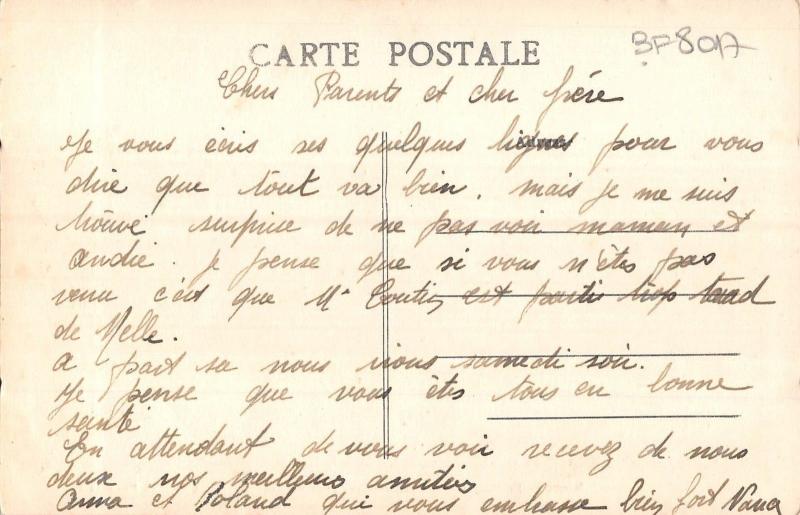 BF80A
CARTE POSTALE
Chers Parents et cher frére
Je vous écris ses quelques lignes pour vous
dire que tout va bien. mais je me suis
trouvé surprise de ne pas voir maman et
andré. je pense que si vous n'êtes pas
venu c'est que Mr est partis trop tard
de Melle.
a part sa nous irions samedi soir.
Je pense que vous êtes tous en bonne
santé
En attendant de vous voir recevez de nous
deux nos meilleurs amitiés
Anna et Roland qui vous embrasse bien fort